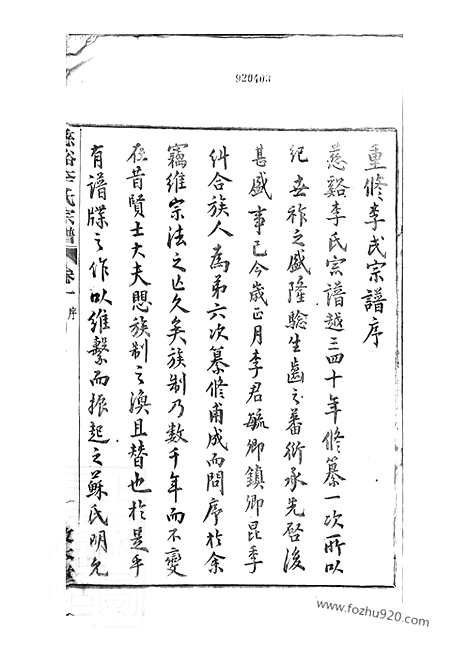 920403
重修李氏宗譜序
慈谿李氏宗譜越三四十年修纂一次所以
紀世祚之盛隆驗生齒之蕃衍承先啓後
甚盛事已今歲正月李君毓卿鎮卿昆季
糾合族人為第六次纂修甫成而問序於余
竊維宗法之亡久矣族制乃數千年而不變
在昔賢士大夫愳族制之渙且替也於是乎
有譜牒之作以維繫而振起之蘇氏明允
慈谿李氏宗譜
卷一
序
一
www.fozhu920.com